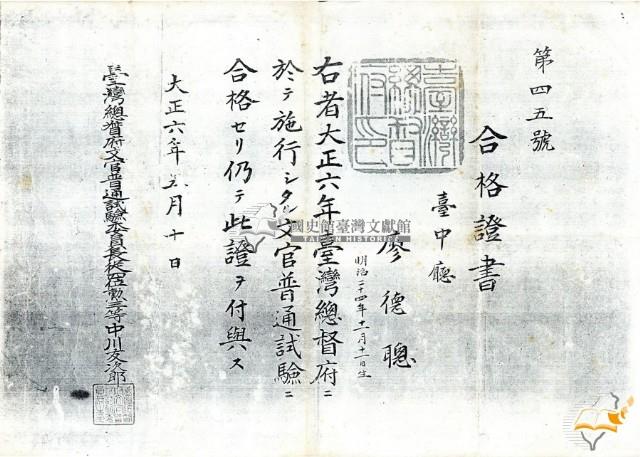 第四五號
合格證書
臺中廳
廖德聰
明治二十四年十一月十二日生
右者大正六年臺灣總督府ニ
於テ施行シタル文官普通試驗ニ
合格セリ仍テ此證ヲ付與ス
大正六年五月十日
臺灣總督府文官普通試驗委員長從四位勲三等中川友次郎
臺灣總督府印
國史館臺灣文獻館
TAIWAN HISTORICA